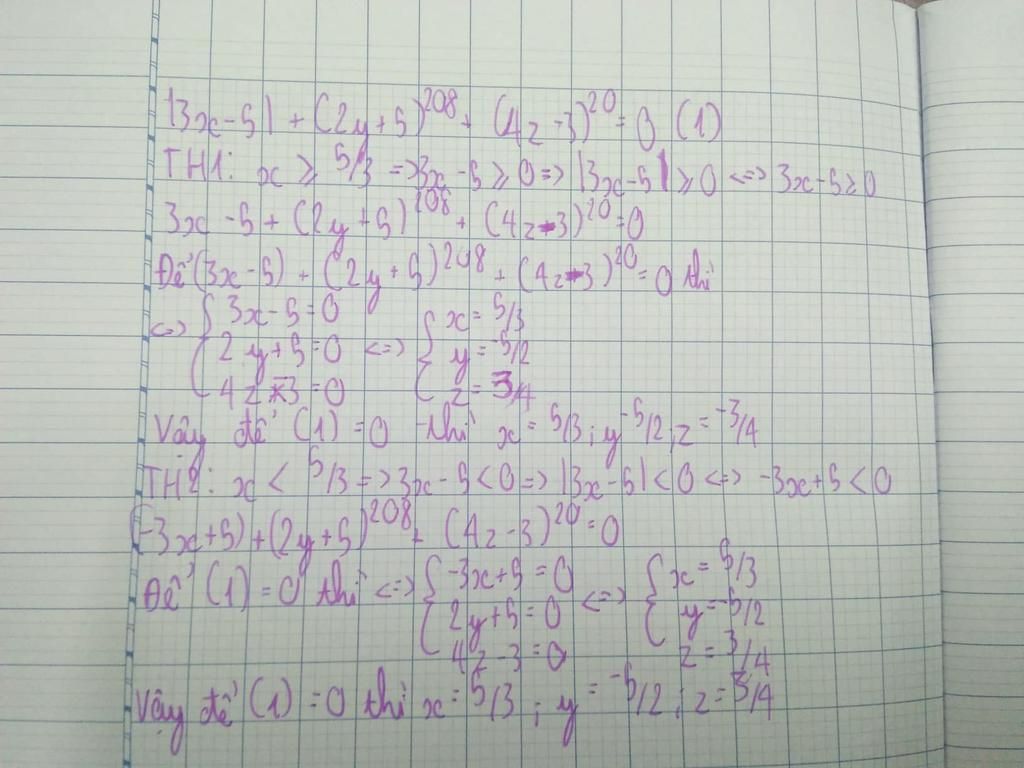 |3x-5| + (2y+5)^208 + (4z-3)^20 = 0 (1)
TH1: x ≥ 5/3 => 3x-5 ≥ 0 => |3x-5| ≥ 0 <=> 3x-5 ≥ 0
3x-5 + (2y+5)^208 + (4z-3)^20 = 0
Để (3x-5) + (2y+5)^208 + (4z-3)^20 = 0 thì
<=> { 3x-5=0 { x=5/3
2y+5=0 <=> y=-5/2
4z-3=0 z=3/4
Vậy để (1) = 0 thì x=5/3; y-5/2; z=-3/4
TH2: x < 5/3 => 3x-5 < 0 => |3x-5| < 0 <=> -3x+5 < 0
(-3x+5) + (2y+5)^208 + (4z-3)^20 = 0
Để (1) = 0 thì <=> { -3x+5=0 <=> { x=5/3
2y+5=0 y=-5/2
4z-3=0 z=3/4
Vậy để (1) = 0 thì x=5/3; y=-5/2; z=3/4